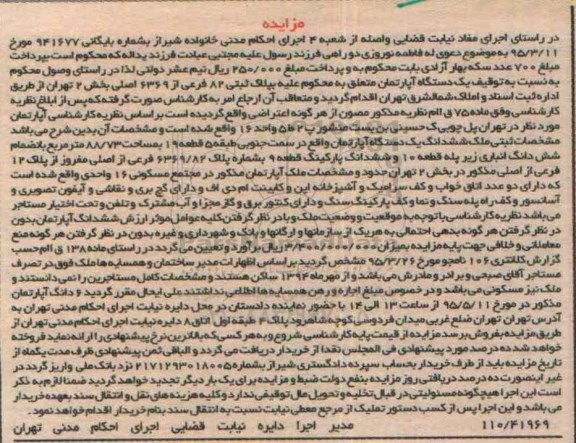 مزایده
در راستای اجرای مفاد نیابت قضایی واصله از شعبه ۴ اجرای احکام مدنی خانواده شیراز بشماره بایگانی ۹۴۱۶۷۷ مورخ
۹۵/۳/۱۱ به موضوع دعوی له فاطمه نوروزی دو راهی فرزند رسول علیه مجتبی عبادت فرزند یداله که محکوم است بپرداخت
مبلغ ۷۰۰ عدد سکه بهار آزادی بابت محکوم به و پرداخت مبلغ ۲۵۰/۰۰۰ ریال نیم عشر دولتی لذا در راستای وصول محکوم
به نسبت به توقیف یک دستگاه آپارتمان متعلق به محکوم علیه بپلاک ثبتی ۸۲ فرعی از ۶۳۶۹ اصلی بخش ۲ تهران از طریق
اداره ثبت اسناد و املاک شمالشرق تهران اقدام گردید و متعاقب آن ارجاع امر به کارشناس صورت گرفته که پس از ابلاغ نظریه
کارشناسی وفق ماده ۷۵ ق ا م نظریه مذکور مصون از هر گونه اعتراضی واقع گردیده است بر اساس نظریه کارشناسی آپارتمان
مورد نظر در تهران پل چوبی ک حسینی بن بست منشور پ ۲ ط ۵ واحد ۱۶ واقع شده است و مشخصات آن بدین شرح می باشد
مشخصات ثبتی ملک ششدانگ یک دستگاه آپارتمان واقع در سمت جنوبی طبقه ۵ قطعه ۱۹ بمساحت ۸۸/۷۳ مترمربع بانضمام
شش دانگ انباری زیر پله قطعه ۱۰ و ششدانگ پارکینگ قطعه ۹ بشماره پلاک ۶۳۶۹/۸۲ فرعی از اصلی مفروز از پلاک ۱۲
فرعی از اصلی مذکور در بخش ۲ تهران حدود و مشخصات ملک آپارتمان مذکور در مجتمع مسکونی ۱۶ واحدی واقع شده است
که دارای دو عدد اتاق خواب و کف سرامیک و آشپزخانه اپن و کابینت ام دی اف و دارای گچ بری و نقاشی و آیفون تصویری و
آسانسور و کف راه پله سنگ و نما و کف پارکینگ سنگ و دارای کنتور برق و گاز مجزا و آب مشترک و تلفن و تحت اختیار مستاجر
می باشد نظریه کارشناسی با توجه به موقعیت و وضعیت ملک و با در نظر گرفتن کلیه عوامل موثر ارزش ششدانگ آپارتمان بدون
در نظر گرفتن هر گونه بدهی احتمالی به هر یک از سازمانها و ارگانها و بانک و شهرداری و غیره بدون در نظر گرفتن هر گونه منع
معاملاتی و خلافی جهت پایه مزایده بمیزان ۳/۴۰۰/۰۰۰/۰۰۰ ریال برآورد و تعیین می گردد در راستای ماده ۱۳۸ ق ا م حسب
گزارش کلانتری ۱۰۶ نامجو مورخ ۹۵/۳/۲۶ مشخص گردید بر اساس اظهارات مدیر ساختمان و همسایه ها ملک فوق در تصرف
مستاجر آقای صبحی و برادر و مادرش می باشد و از مهرماه ۱۳۹۴ ساکن هستند و مشخصات کامل مستاجرین را نمی دانستند و
ملک نیز مسکونی می باشد و در خصوص مبلغ اجاره و رهن همسایه ها اطلاعی نداشتند علی ایحال مقرر گردید ۶ دانگ آپارتمان
مذکور در مورخ ۹۵/۵/۱۱ از ساعت ۱۳ الی ۱۴ با حضور نماینده دادستان در محل دایره نیابت اجرای احکام مدنی تهران به
آدرس تهران تهران ضلع غربی میدان فردوسی کوچه شاهرود پلاک ۴ طبقه اول اتاق ۸ دایره نیابت اجرای احکام مدنی تهران از
طریق مزایده بفروش برسد مزایده از قیمت پایه کارشناسی شروع و به هر کسی که بالاترین نرخ پیشنهادی را ارائه نماید فروخته
خواهد شد ده درصد مورد پیشنهادی فی المجلس نقدا از خریدار دریافت می گردد و الباقی ثمن پیشنهادی ظرف مدت یکماه از
تاریخ مزایده باید از طرف خریدار بحساب سپرده دادگستری شیراز بشماره ۲۱۷۱۲۹۳۰۱۸۰۰۵ نزد بانک ملی واریز گردد در
غیر اینصورت ده درصد دریافتی روز مزایده بنفع دولت ضبط و مزایده برای یک بار دیگر تجدید خواهد گردید ضمنا لازم به ذکر
است این اجرا هیچگونه مسئولیتی در قبال تخلیه و تحویل مال توقیفی ندارد و کلیه هزینه های نقل و انتقال سند بعهده خریدار
می باشد و این اجرا پس از کسب دستور تملیک از مرجع معطی نیابت نسبت به انتقال سند بنام خریدار اقدام خواهد نمود.
۱۱۰/۴۱۹۶۹ مدیر اجرا دایره نیابت قضایی اجرای احکام مدنی تهران